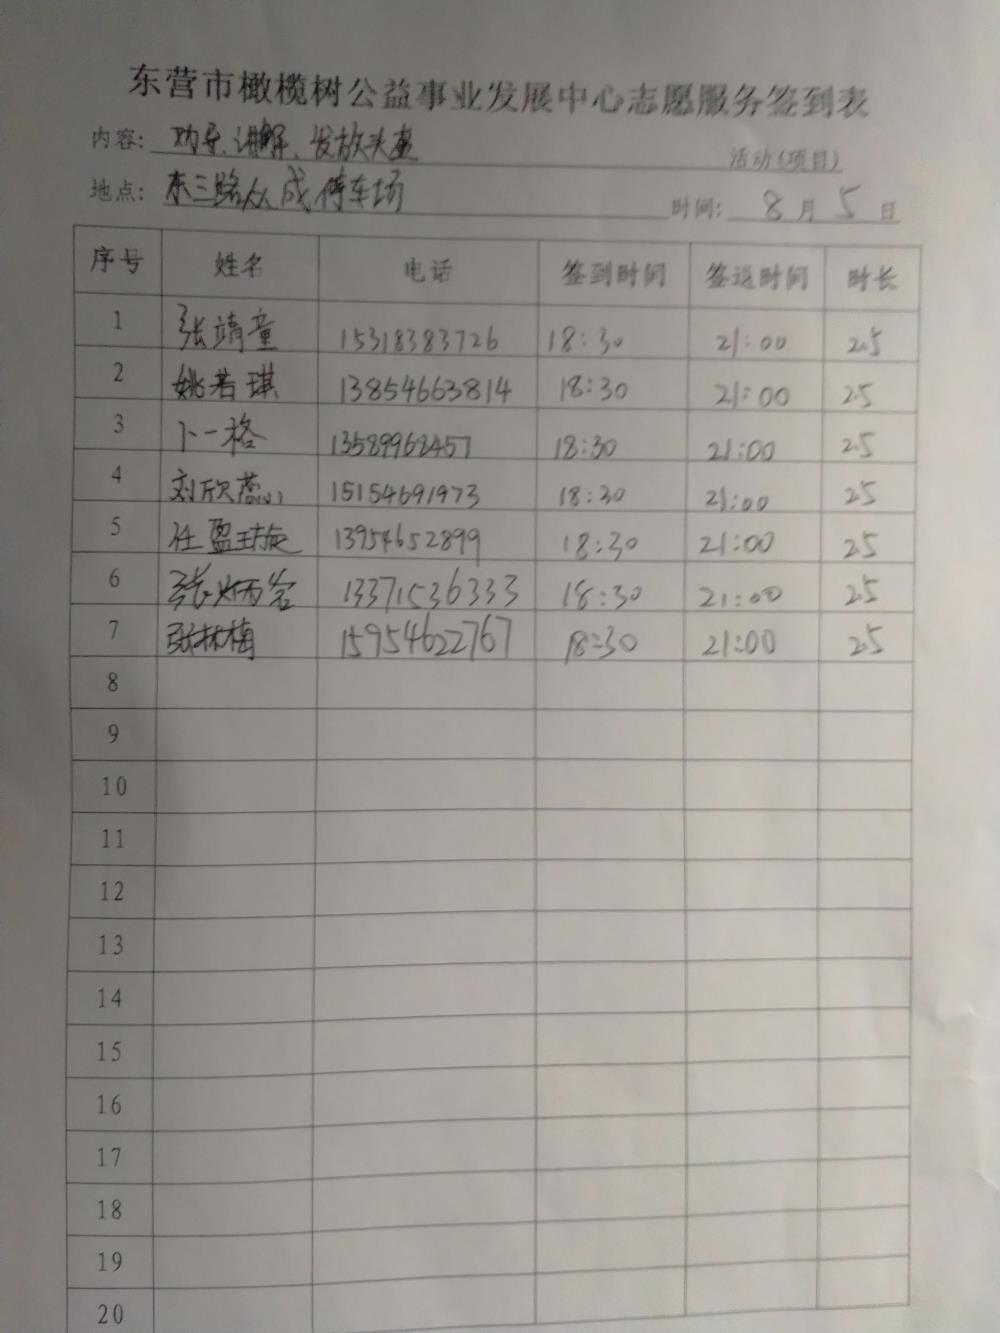 东营市橄榄树公益事业发展中心志愿服务签到表
内容: 劝导、讲解、发放头盔 活动(项目)
地点: 东三路众成停车场 时间: 8月5日
序号 姓名 电话 签到时间 签退时间 时长
1 张靖童 15318383726 18:30 21:00 2.5
2 姚若琪 13854663814 18:30 21:00 2.5
3 卜一格 13589968457 18:30 21:00 2.5
4 刘欣蕊 15154691973 18:30 21:00 2.5
5 任盈璇 13954652899 18:30 21:00 2.5
6 张炳岩 13371536333 18:30 21:00 2.5
7 张林梅 15954622767 18:30 21:00 2.5
8
9
10
11
12
13
14
15
16
17
18
19
20